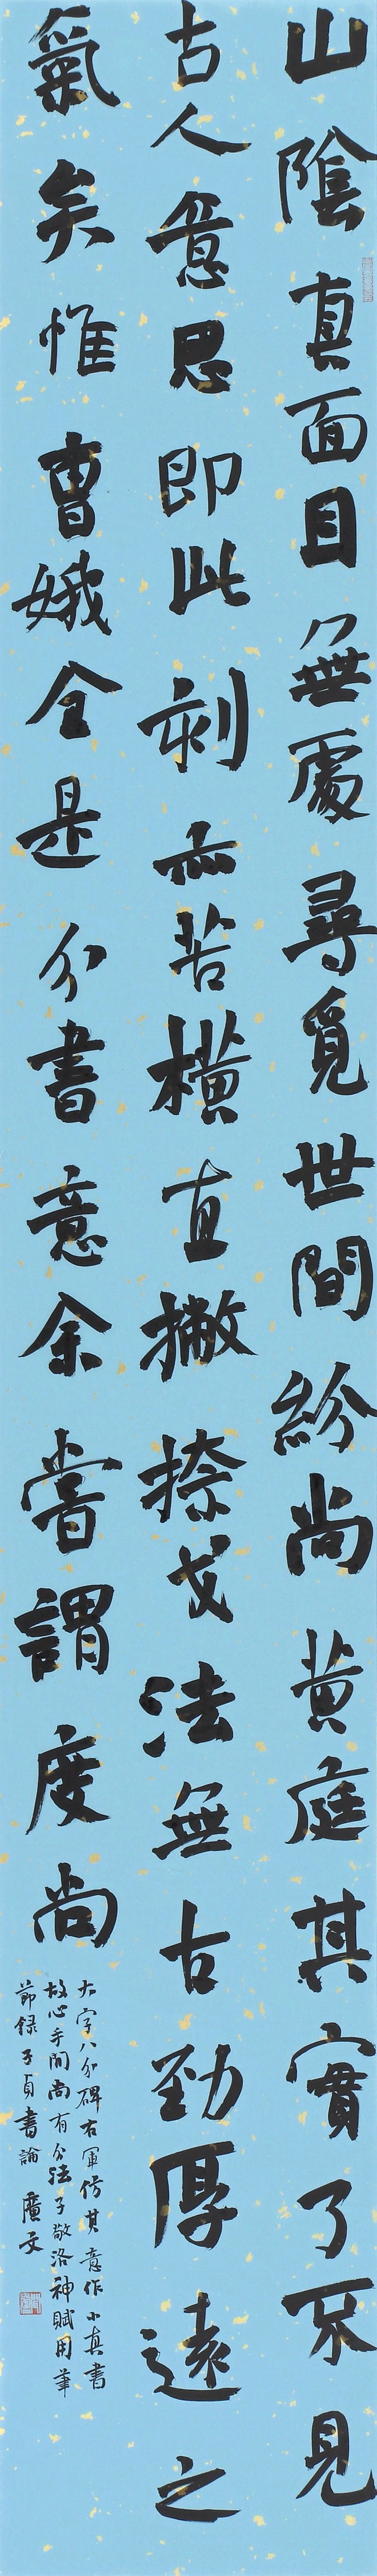 山陰真面目無處尋覓世間紛尚黄庭其實了不見
古人意思即此刻亦苦橫直撇捺戈法無古勁厚遠之
氣矣惟曹娥全是分書意余嘗謂度尚
大字八分碑右軍仿其意作小真書
故心手間尚有分法子敬洛神賦用筆
節録子貞書論 廣文